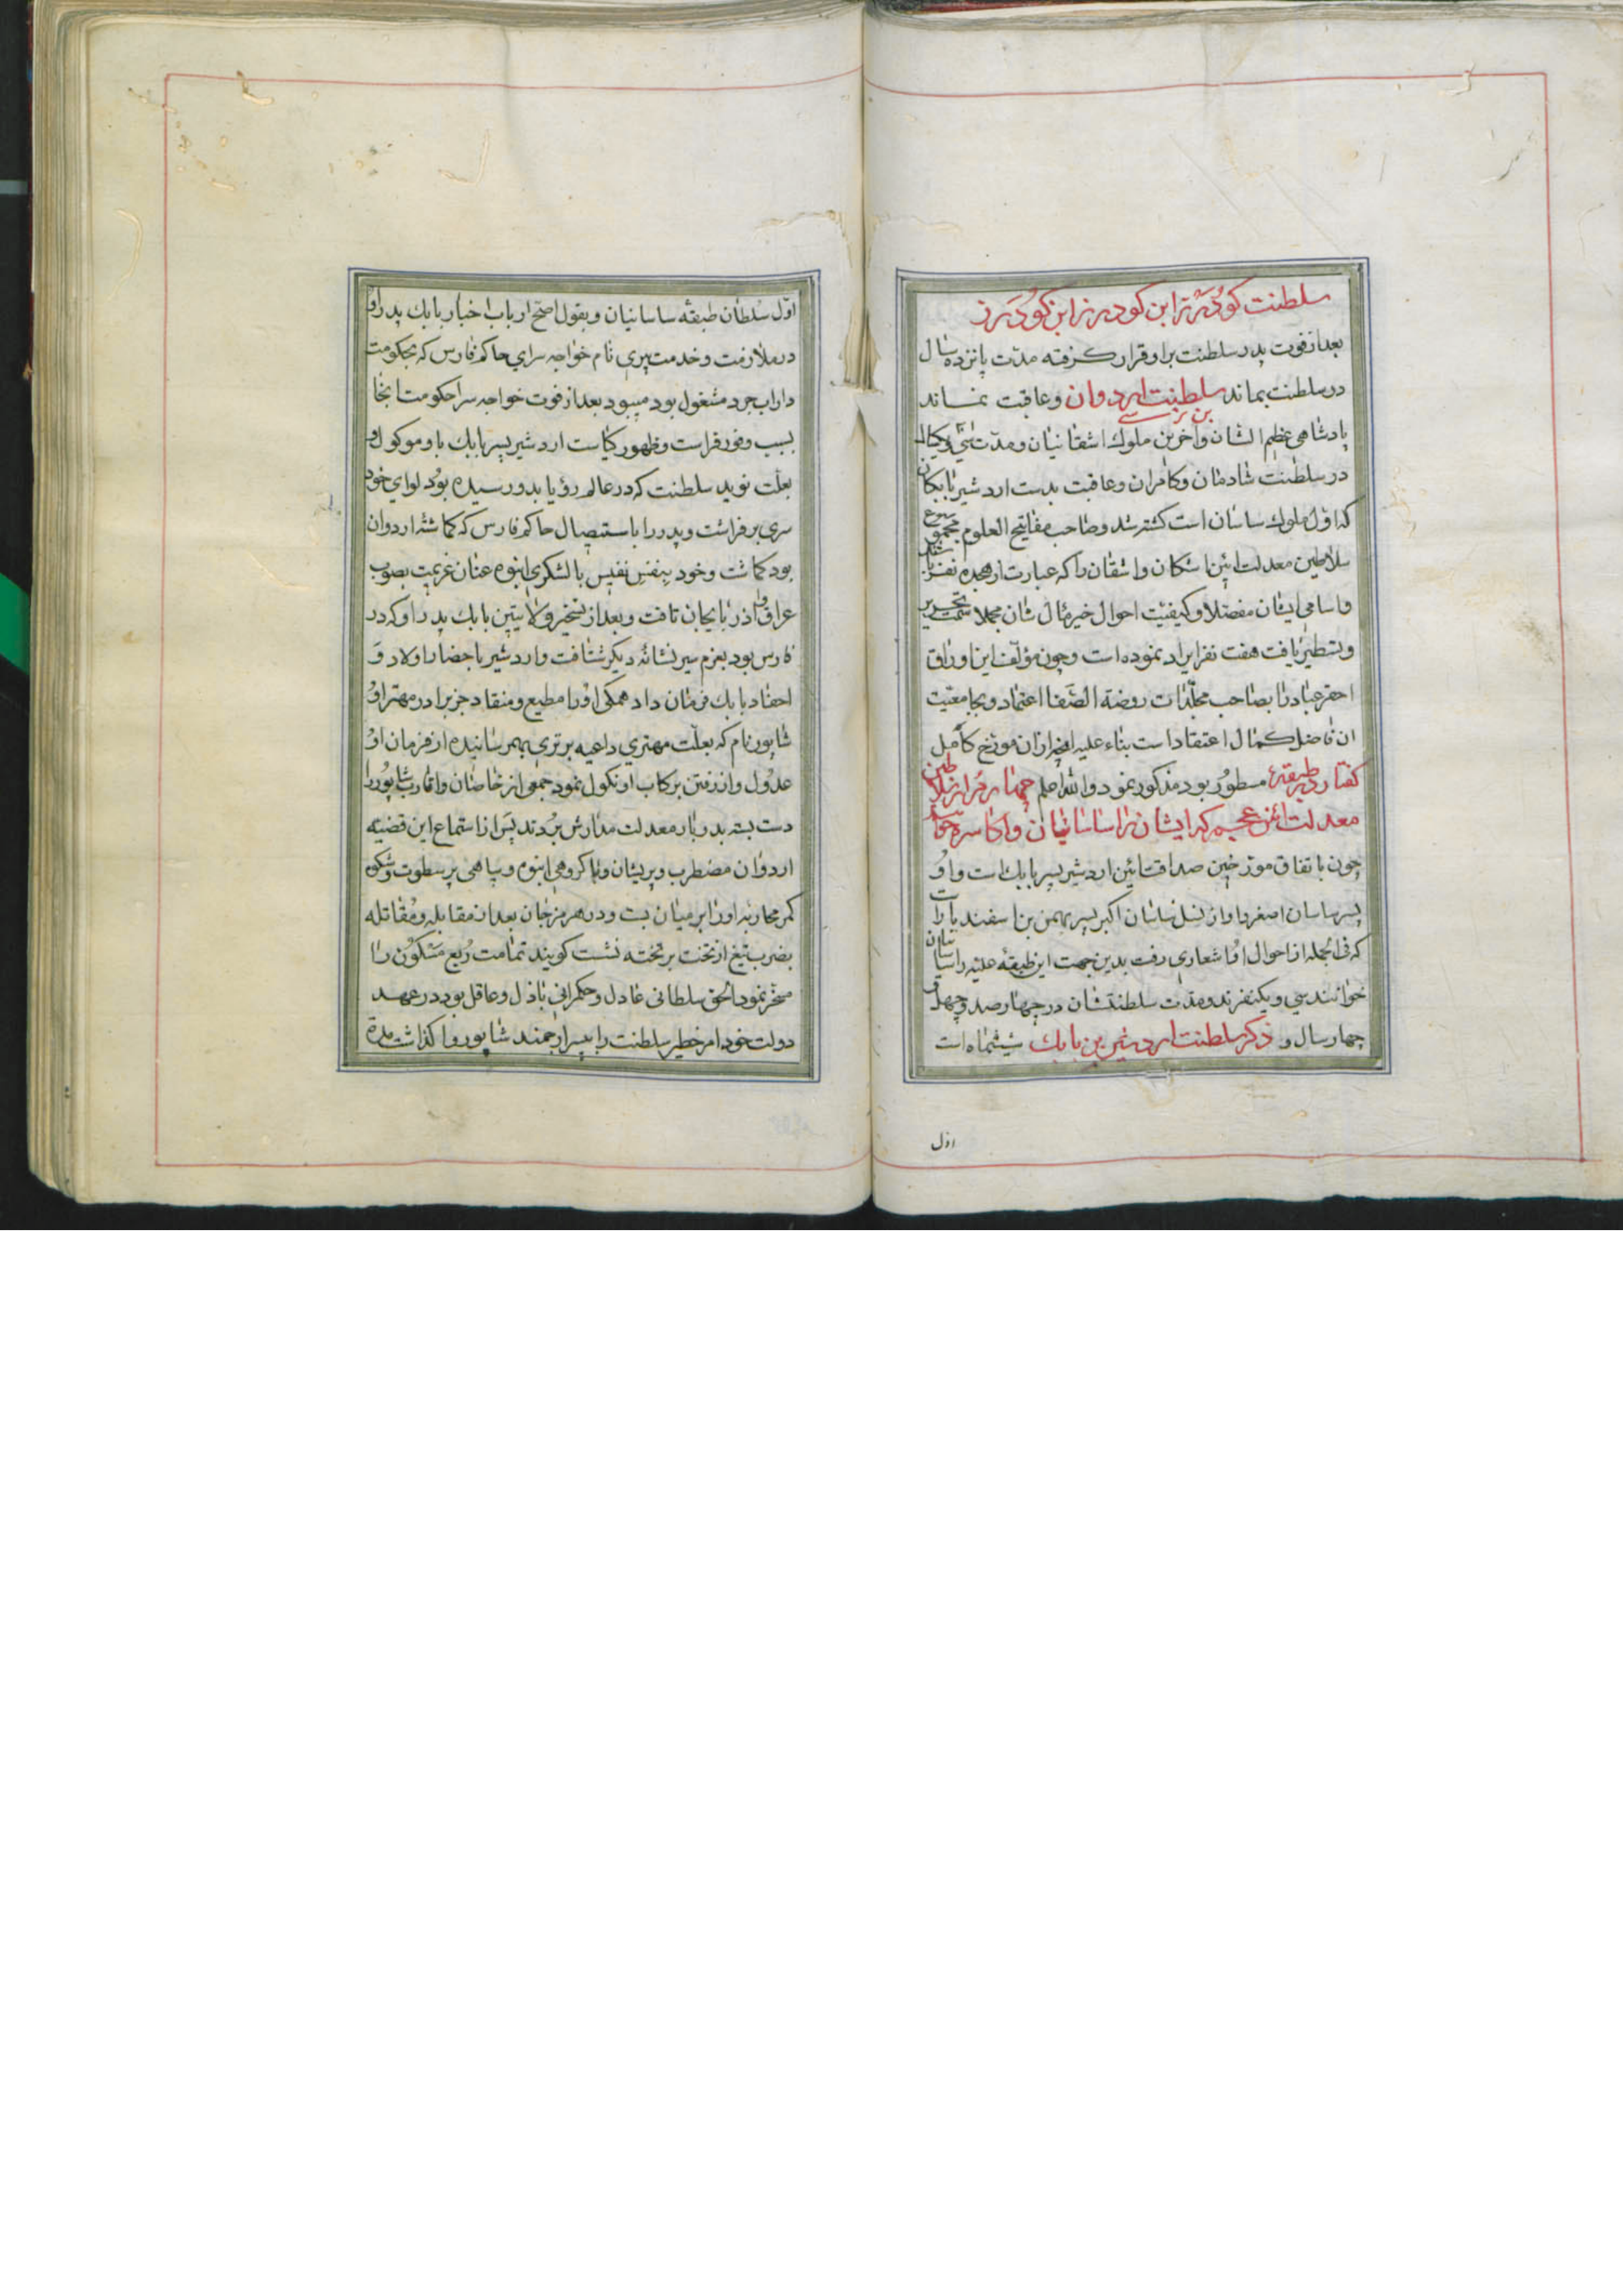 سلطنت کودرز ابن کودرز ابن کودرز
بعد از فوت پدر سلطنت براو قرار کرفته مدّت پانزده سال
در سلطنت بماند سلطنت اردوان بن نرسی وعاقبت نماند
پادشاهی عظیم الشان وآخرین ملوک اشقانیان ومدّت سی ویکسال
در سلطنت شادمان وکامران وعاقبت بدست اردشیر بابکان
که اوّل ملوک ساسان است کشته شد وصاحب مفاتیح العلوم مجموع
سلاطین معدلت آئین اشکان واشقان را که عبارت از هجده نفر باشند
واسامی ایشان مفصّلا وکیفیّت احوال خیر مآل شان مجملا سمت تحریر
وتسطیر یافت هفت نفر ایراد نموده است وچون مؤلّف این اوراق
احقر عباد را بصاحب مجلّدات روضة الصّفا اعتماد وبجامعیّت
ان فاضل کمال اعتقاد است بناء علیه انچه از ان مورّخ کامل
مسطور بود مذکور نمود والله اعلم کفتار در طبقهٔ چهارم از سلاطین
معدلت آئین عجم که ایشان را ساسانیان واکاسره خوانند
چون باتفاق مورّخین صداقت آئین اردشیر پسر بابک است واو
پسر ساسان اصغر واو از نسل ساسان اکبر پسر بهمن بن اسفندیار است
که فی الجمله از احوال او اشعاری رفت بدین جهت این طبقهٔ علیّه را ساسانیان
خوانند سی ویکنفرند ومدّت سلطنتشان در چهارصد وچهل و
چهار سال و ششماه است ذکر سلطنت اردشیر بن بابک
اوّل
اوّل سلطان طبقه ساسانیان وبقول اصحّ ارباب اخبار بابک پدر او
در ملازمت وخدمت پیری نام خواجه سرای حاکم فارس که بحکومت
داراب جرد مشغول بود میبود بعد از فوت خواجه سرا حکومت انجا
بسبب وفور فراست وظهور کیاست اردشیر پسر بابک باو موکول و
بعلّت نوید سلطنت که در عالم رؤیا بدو رسیده بود لوای خود
سری برفراشت وپدر را باستیصال حاکم فارس که کماشته اردوان
بود کماشت وخود بنفس نفیس بالشکری انبوه عنان عزیمت بصوب
عراق واذربایجان تافت وبعد از تسخیر ولایتین بابک پدر او که در
فارس بود بعزم سیر نشانه دیکر شتافت واردشیر باحضار اولاد و
احفاد بابک فرمان داد همکی اورا مطیع ومنقاد جز برادر مهتر او
شاپور نام که بعلّت مهتری داعیه برتری بهم رسانیده از فرمان او
عدول واز رفتن برکاب او نکول نمود جمعی از خاصان واقارب شاپور را
دست بسته بدربار معدلت مدارش بردند پس از استماع این قضیه
اردوان مضطرب وپریشان وبا کروهی انبوه وسپاهی پر سطوت وشکوه
کمر محاربه اورا بر میان بست ودر هرمزجان بعد از مقابله ومقاتله
بضرب تیغ از تخت بر تخته نشست کویند تمامت ربع مسکون را
مسخّر نمود الحق سلطانی عادل وحکمرانی باذل وعاقل بود در عهد
دولت خود امر خطیر سلطنت را بپسر ارجمند شاپور واکذاشت مدة